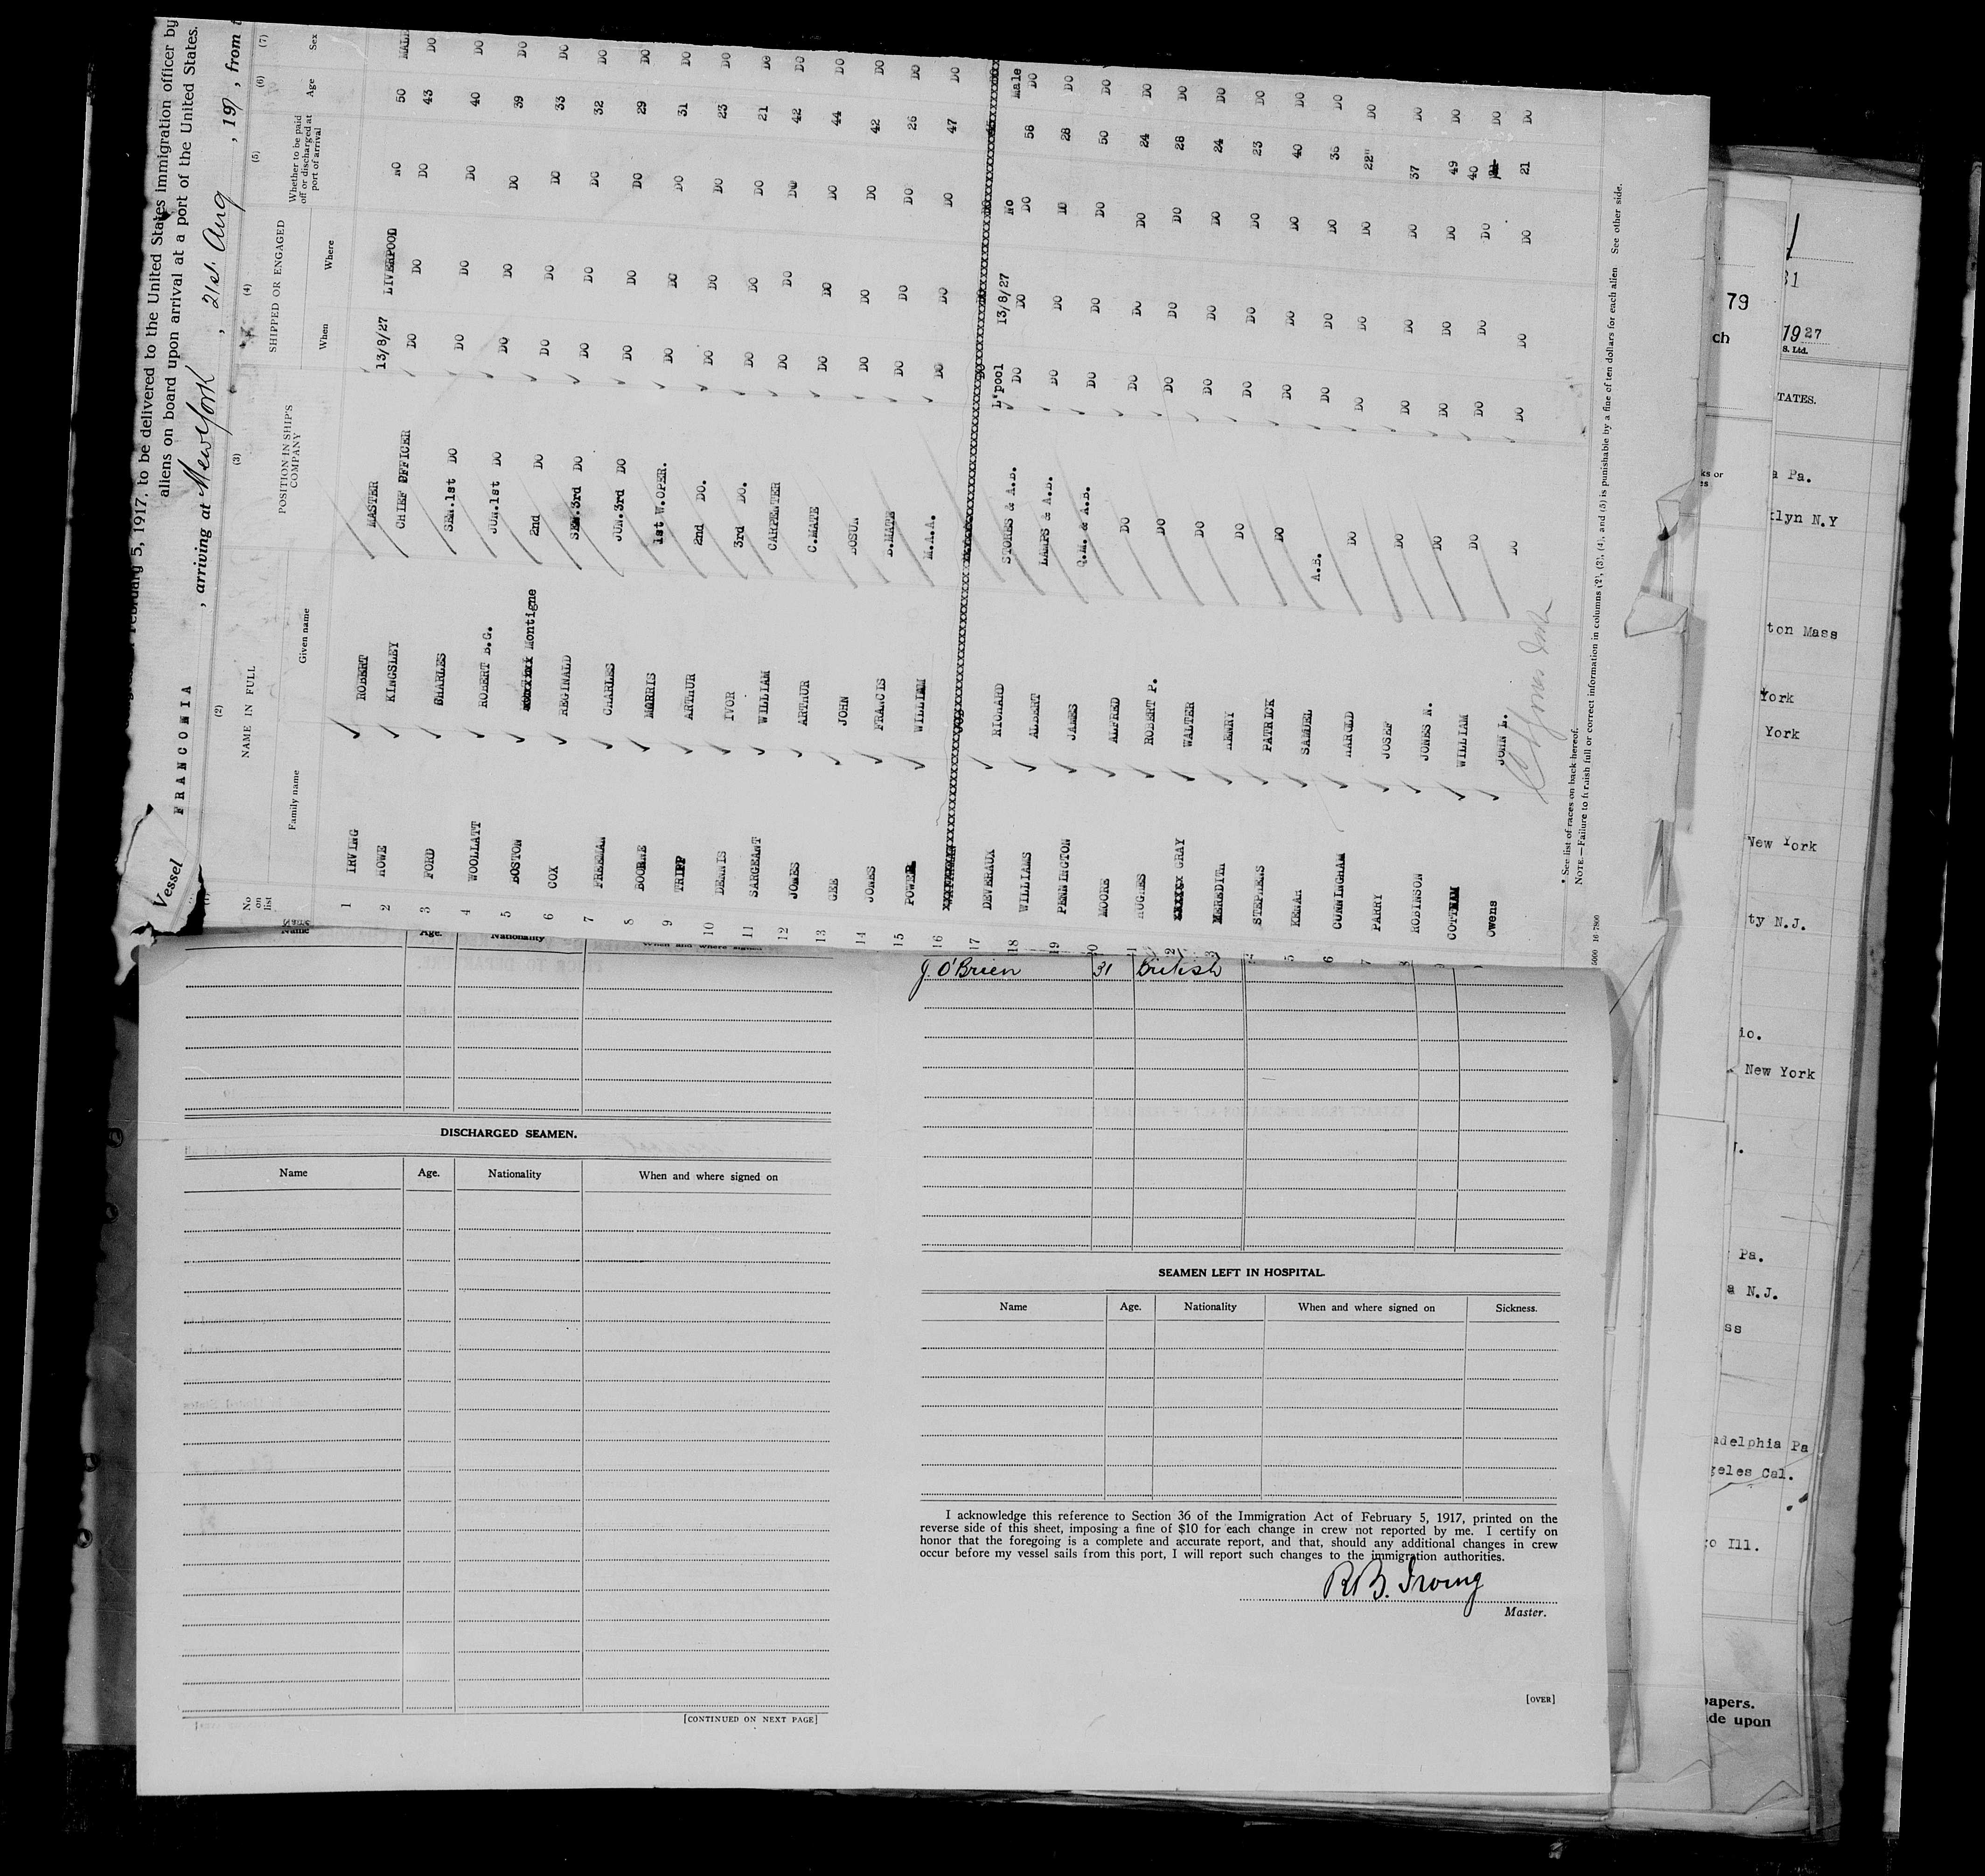 February 5, 1917, to be delivered to the United States immigration officer by
aliens on board upon arrival at a port of the United States.
Vessel FRANCONIA, arriving at New York, 21st Aug, 192, from
(2) (3) (4) (5) (6) (7)
No on list
NAME IN FULL
Family name Given name
POSITION IN SHIP'S COMPANY
SHIPPED OR ENGAGED
When Where
Whether to be paid off or discharged at port of arrival
Age Sex
1 IRVING ROBERT MASTER 13/8/27 LIVERPOOL NO 50 MALE
2 HOWE KINGSLEY CHIEF OFFICER DO DO DO 43 DO
3 FORD CHARLES SEN.1st DO DO DO DO 40 DO
4 WOOLLATT ROBERT B.G. JUN.1st DO DO DO DO 39 DO
5 BOSTON Montigne 2nd DO DO DO DO 33 DO
6 COX REGINALD SEN.3rd DO DO DO DO 32 DO
7 FREEMAN CHARLES JUN.3rd DO DO DO DO 29 DO
8 BOORNE MORRIS 1st W.OPER. DO DO DO 31 DO
9 TRIPP ARTHUR 2nd DO. DO DO DO 23 DO
10 DENNIS IVOR 3rd DO. DO DO DO 21 DO
11 SARGEANT WILLIAM CARPENTER DO DO DO 42 DO
12 JONES ARTHUR C.MATE DO DO DO 44 DO
13 GEE JOHN BOSUN DO DO DO 42 DO
14 JONES FRANCIS B.MATE DO DO DO 26 DO
15 POWER WILLIAM M.A.A. DO DO DO 47 DO
16
17 DEVERAUX RICHARD STORES & A.B. L'pool 13/8/27 No 58 Male
18 WILLIAMS ALBERT LAMPS & A.B. DO DO DO 28 DO
19 PENNINGTON JAMES Q.M. & A.B. DO DO DO 50 DO
MOORE ALFRED DO DO DO DO 24 DO
HUGHES ROBERT P. DO DO DO DO 28 DO
GRAY WALTER DO DO DO DO 24 DO
MEREDITH HENRY DO DO DO DO 23 DO
STEPHENS PATRICK DO DO DO DO 40 DO
KENAH SAMUEL A.B. DO DO DO 36 DO
CUNNINGHAM HAROLD DO DO DO DO 22 DO
PARRY JOSEF DO DO DO DO 37 DO
ROBINSON JONES N. DO DO DO DO 49 DO
COTTMAN WILLIAM DO DO DO DO 40 DO
Owens JOHN L. DO DO DO DO 21 DO
* See list of races on back hereof.
NOTE.—Failure to furnish full or correct information in columns (2), (3), (4), and (5) is punishable by a fine of ten dollars for each alien See other side.
Name Age. Nationality When and where signed
J. O'Brien 31 British
DISCHARGED SEAMEN.
Name Age. Nationality When and where signed on
[CONTINUED ON NEXT PAGE]
SEAMEN LEFT IN HOSPITAL.
Name Age. Nationality When and where signed on Sickness.
I acknowledge this reference to Section 36 of the Immigration Act of February 5, 1917, printed on the
reverse side of this sheet, imposing a fine of $10 for each change in crew not reported by me. I certify on
honor that the foregoing is a complete and accurate report, and that, should any additional changes in crew
occur before my vessel sails from this port, I will report such changes to the immigration authorities.
R.B. Irving
Master.
[OVER]
79
ch
1927
S. Ltd.
TATES.
Pa.
klyn N.Y
ton Mass
York
York
New York
ty N.J.
io.
New York
Pa.
a N.J.
ss
adelphia Pa
geles Cal.
o Ill.
papers.
de upon